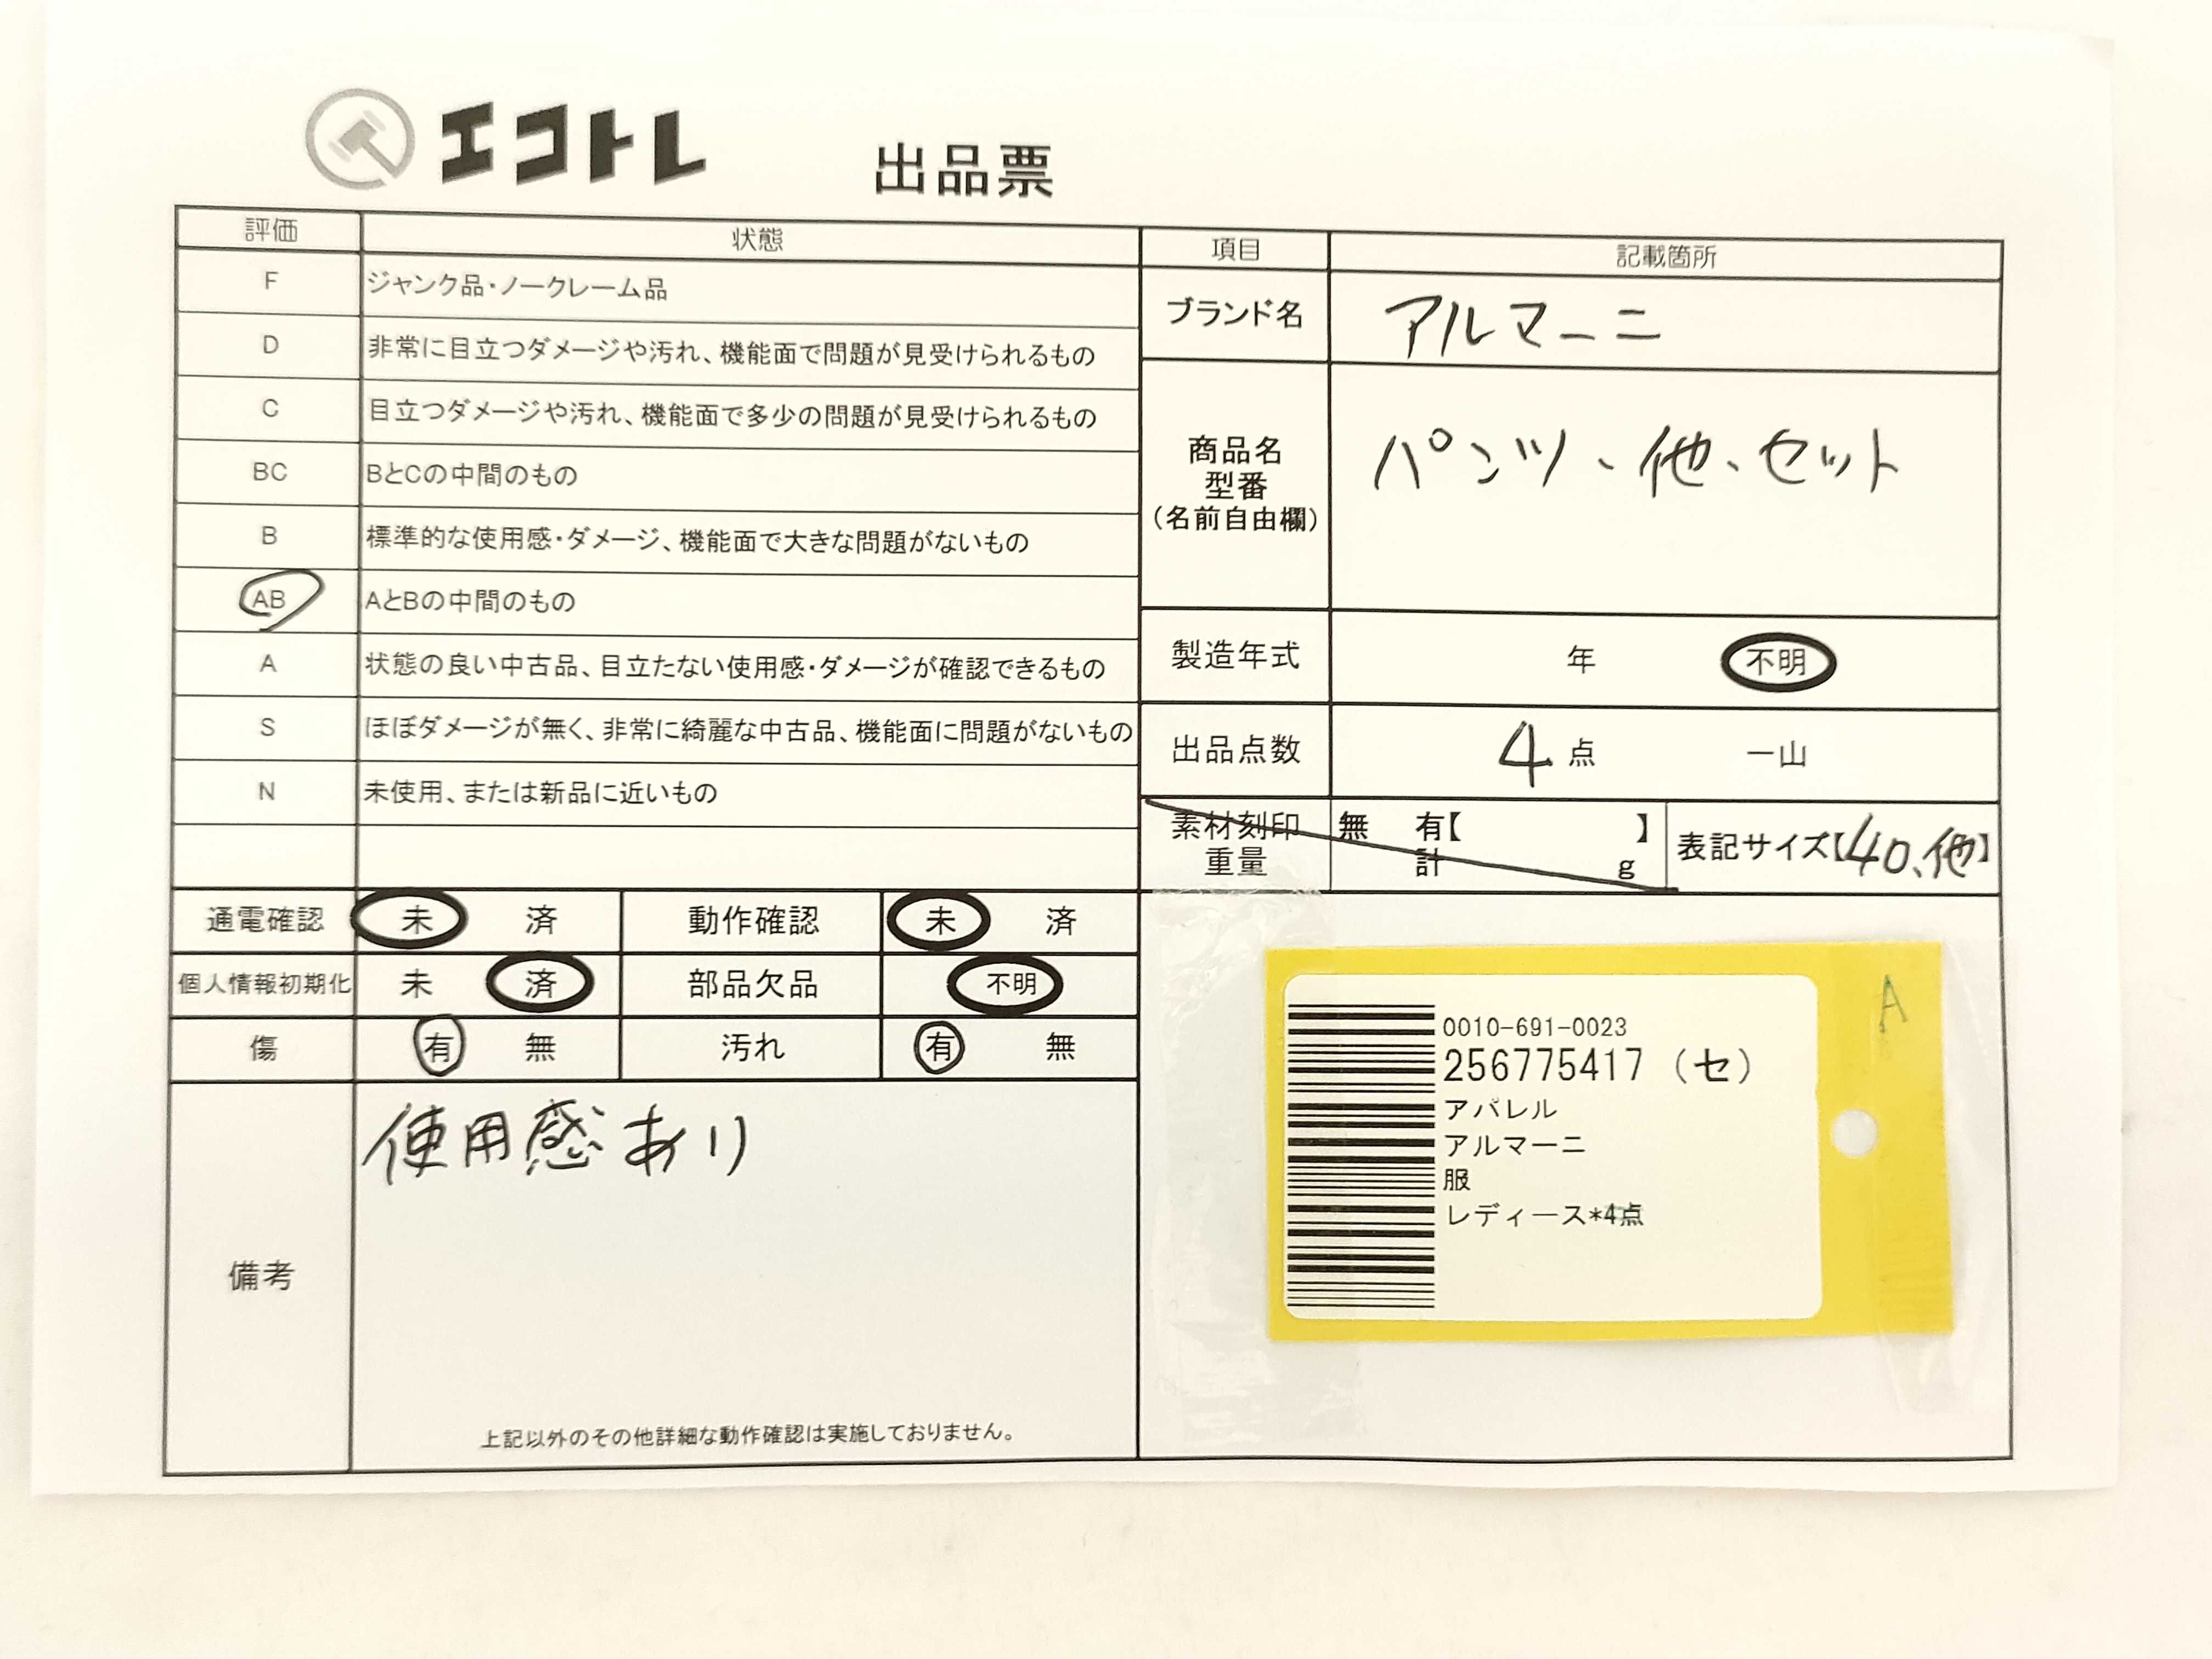 エコトレ
出品票
評価 状態
F ジャンク品・ノークレーム品
D 非常に目立つダメージや汚れ、機能面で問題が見受けられるもの
C 目立つダメージや汚れ、機能面で多少の問題が見受けられるもの
BC BとCの中間のもの
B 標準的な使用感・ダメージ、機能面で大きな問題がないもの
AB AとBの中間のもの
A 状態の良い中古品、目立たない使用感・ダメージが確認できるもの
S ほぼダメージが無く、非常に綺麗な中古品、機能面に問題がないもの
N 未使用、または新品に近いもの
項目 記載箇所
ブランド名 アルマーニ
商品名
型番
(名前自由欄)
パンツ、他、セット
製造年式 年 不明
出品点数 4 点 一山
素材刻印 無 有【 】
重量 計 g
表記サイズ【40、他】
通電確認 未 済 動作確認 未 済
個人情報初期化 未 済 部品欠品 不明
傷 有 無 汚れ 有 無
備考
使用感あり
上記以外のその他詳細な動作確認は実施しておりません。
A
0010-691-0023
256775417 (セ)
アパレル
アルマーニ
服
レディース*4点